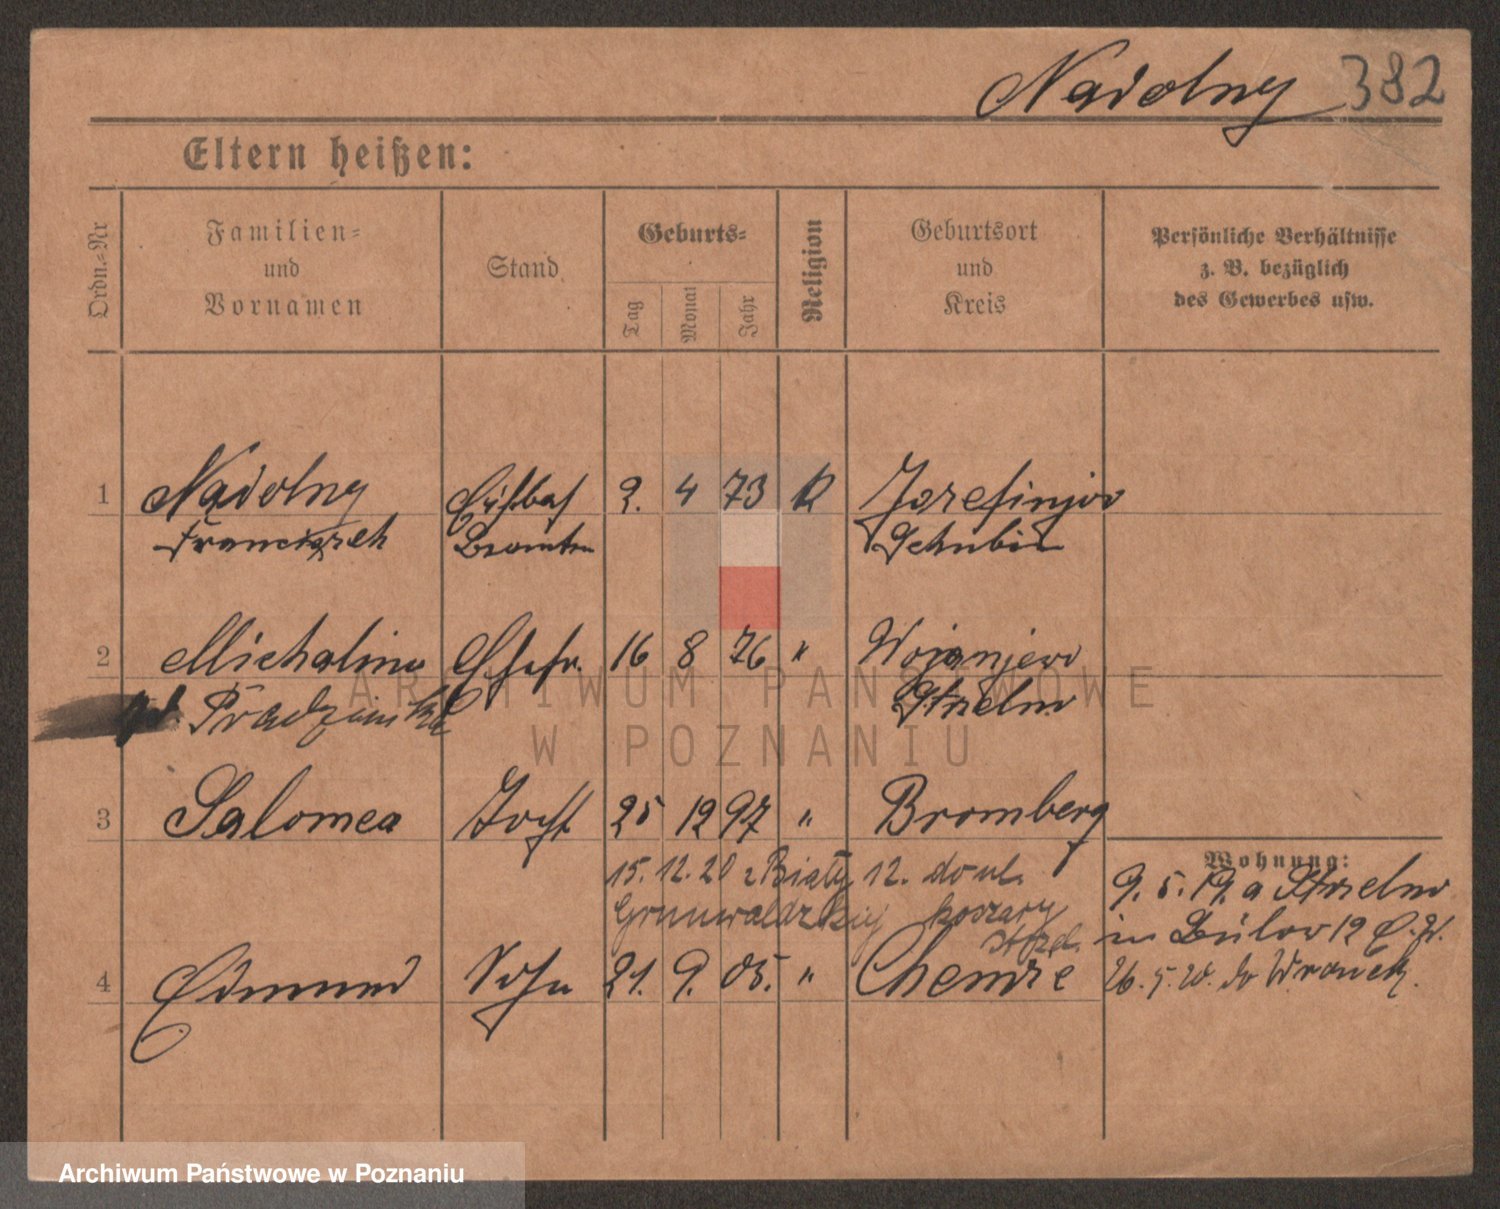 Nadolny 382
Eltern heißen:
Ordn.-Nr
Familien-
und
Vornamen
Stand
Geburts-
Tag
Monat
Jahr
Religion
Geburtsort
und
Kreis
Persönliche Verhältnisse
z. B. bezüglich
des Gewerbes usw.
1 Nadolny 2. 4 73 K Jozefinowo
Franciszek Schubin
2 Michalina Ehefr. 16 8 76 "
Strelno
3 Salomea 25 12 97 " Bromberg
Wohnung:
15. 12. 20 z Biały 12. do ul.
Grunwaldzkiej koszary
9. 5. 19. a Strzelno
in Bülow 12
4 Edmund Sohn 21. 9. 05. "
26. 5. 20. do Wronek.
ARCHIWUM PAŃSTWOWE
W POZNANIU
Archiwum Państwowe w Poznaniu